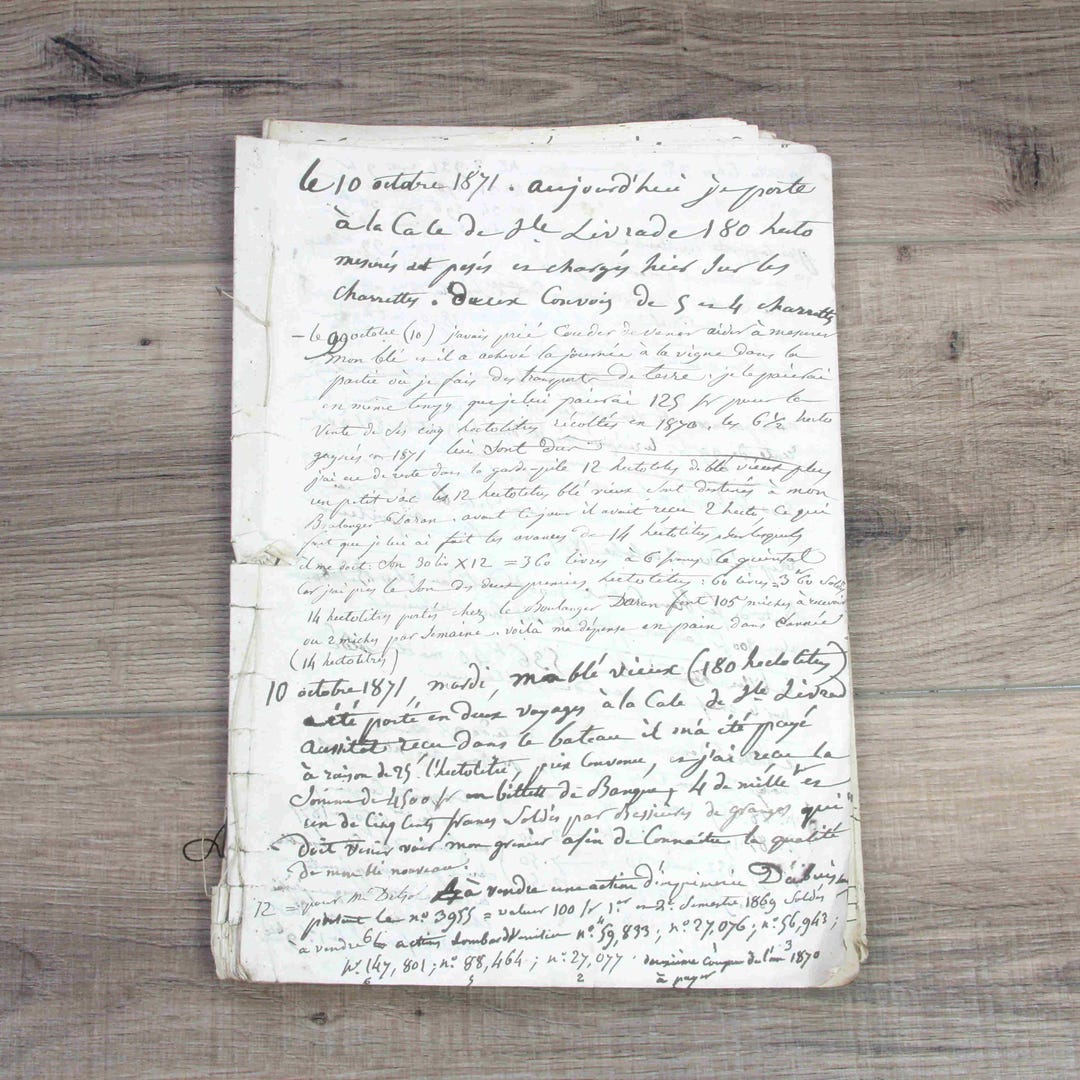 le 10 octobre 1871. aujourd'hui je porte
à la Cale de Ste Livrade 180 hecto
mesurés et pesés et chargés hier sur les
charrettes. deux Convois de 5 et 4 charrettes
– le 9 octobre (10) j'avais prié Couder de venir aider à mesurer
mon blé et il a achevé la journée à la vigne dans la
partie où je fais des transports de terre; je le paierai
en même temps que je lui paierai 125 fr pour la
Vente de ses cinq hectolitres récoltés en 1870. les 6 1/2 hecto
gagnés en 1871 lui sont dus
j'ai eu de reste dans la garde-pile 12 hectolitres de blé vieux plus
un petit sac les 12 hectolitres blé vieux sont destinés à mon
Boulanger Daran. avant ce jour il avait reçu 2 hecto ce qui
fait que je lui ai fait les avances de 14 hectolitres sur lesquels
il me doit: son 30 liv X 12 = 360 livres à 6 francs le quintal
car j'ai pris le son des deux premiers hectolitres: 60 livres = 3 60 soldés
14 hectolitres portés chez le Boulanger Daran font 105 miches à recevoir
ou 2 miches par semaine. voilà ma dépense en pain dans l'année
(14 hectolitres)
10 octobre 1871, mardi, mon blé vieux (180 hectolitres)
a été porté en deux voyages à la Cale de Ste Livrade
aussitôt reçu dans le bateau il m'a été payé
à raison de 25f l'hectolitre, prix convenu, et j'ai reçu la
somme de 4500 fr en billets de Banque, 4 de mille fr et
un de cinq cents francs soldés par Bessières de granges qui
doit venir voir mon grenier afin de connaître la qualité
de mon blé nouveau.
12 = pour Mr à vendre une action d'imprimerie
portant le no 3955 = valeur 100 fr 1er et 2e semestre 1869 soldés
à vendre 6 actions Lombard Vénitien no 59,833; no 27,076; no 56,943;
no 147,801; no 88,464; no 27,077. deuxième coupon de l'an 1870
6 5 2 à payer